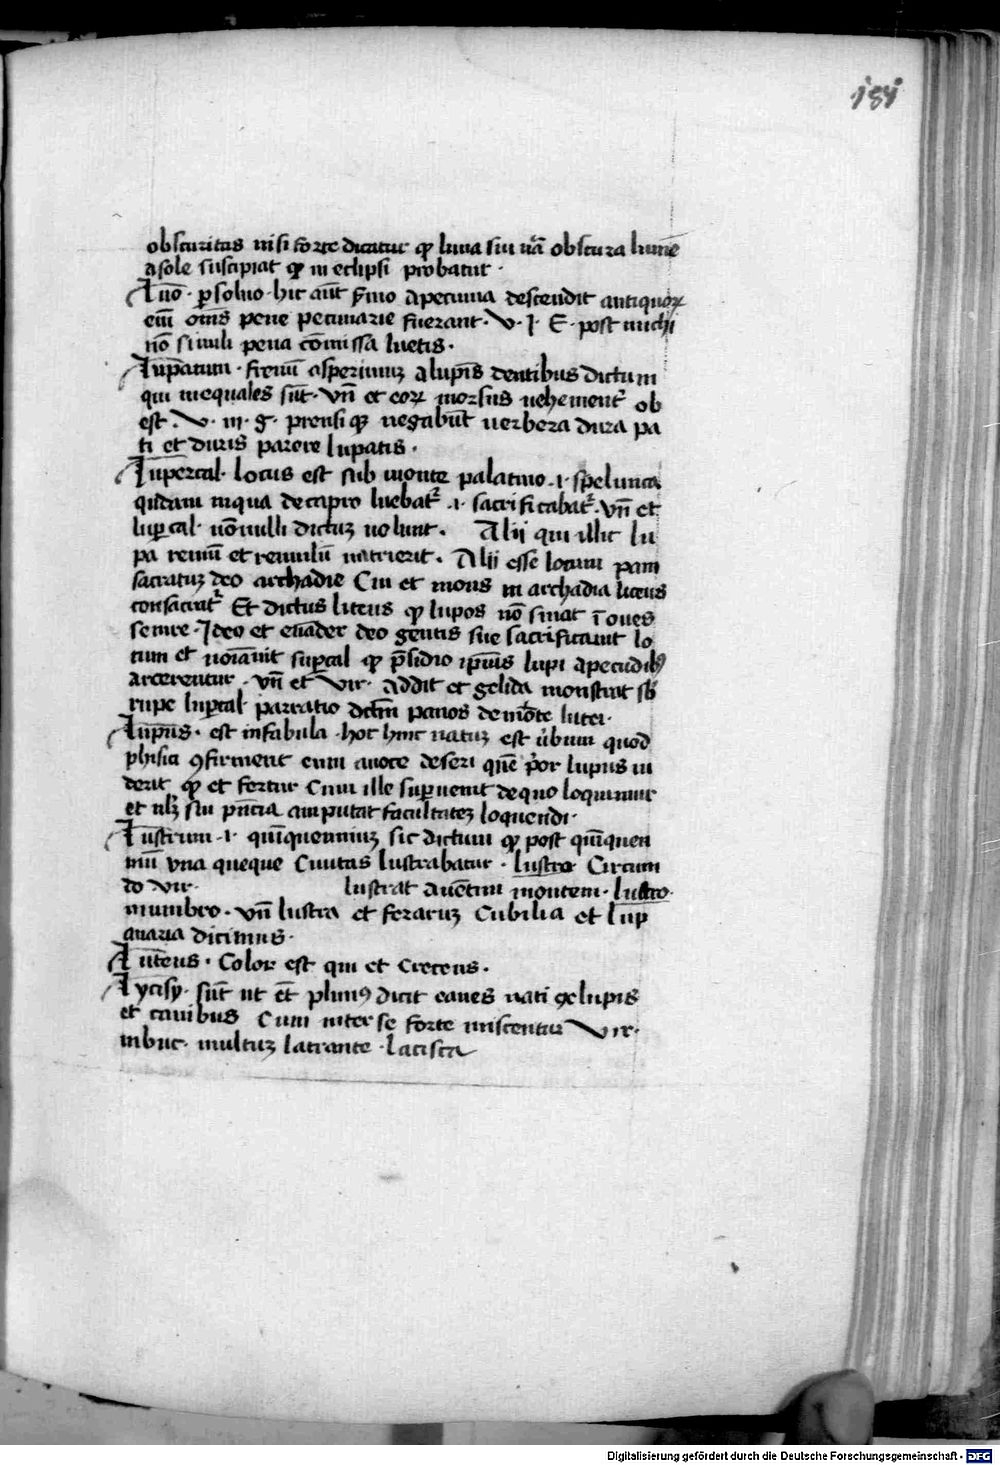 181
obscuritas nisi forte dicatur qp luna sui nā obscura lumē
a sole suscipiat qp in eclipsi probatur ·
Luo · psoluo · hic aūt ẜmo a pecunia descendit antiquoꝝ
eiū om̄s pene pecuniarie fuerant · V · I · E · post michi
nō simili pena cōmissa luetis ·
Lupatum · frenū asperimuꝫ a lupis dentibus dictum
qui inequales sūt · vn̄ et eoꝝ morsus uehement̾ ob
est · V · iii · g · prensi qꝫ negabūt uerbera dura pa
ti et duris parere lupatis ·
Lupercal · locus est sub monte palatino · i · spelunca
quedam in qua de capro luebat̾ · i · sacrificabat̾ · vn̄ et
lupcal · nōnulli dictuꝫ uolunt · Alij qui illic lu
pa remū et remulū nutrierit · Alii esse locum pani
sacratuꝫ deo archadie Cui et mons in archadia liceus
consacrat̾ Et dictus liceus qp lupos nō sinat ī oues
seuire · Ideo et euāder deo gentis sue sacrificauit lo
cum et noīauit lupcal qp p̄sidio ip̄ius lupi a pecudibꝰ
arcerentur · vn̄ et Vir · addit et gelida monstrat sb̄
rupe lupcal · parratio dctm̄ panos de mōte lucei ·
Lupus · est in fabula · hoc hinc natuꝫ est u̾bum quod
phisici ꝯfirment eum auoce deseri quē p̾or lupus ui
derit qp et fertur Cum ille supuenit de quo loquimur
et nlꝫ sui pn̄cia amputat facultateꝫ loquendi ·
Lustrum · i · quīquenniuꝫ sic dictum qp post quīquen
niū vna queque Ciuitas lustrabatur · lustro Circum
do Vir · lustrat auentini montem · lustro ·
illumbro · vn̄ lustra et feraruꝫ Cubilia et lup
anaria dicimus ·
Luteus · Color est qui et Croceus ·
Lycisy · sūt ut et̄ pliniꝰ dicit canes nati ge lupis
et canibus Cum inter se forte miscentur Vir ·
inbuc · multuꝫ latrante · lacisca
Digitalisierung gefördert durch die Deutsche Forschungsgemeinschaft - DFG